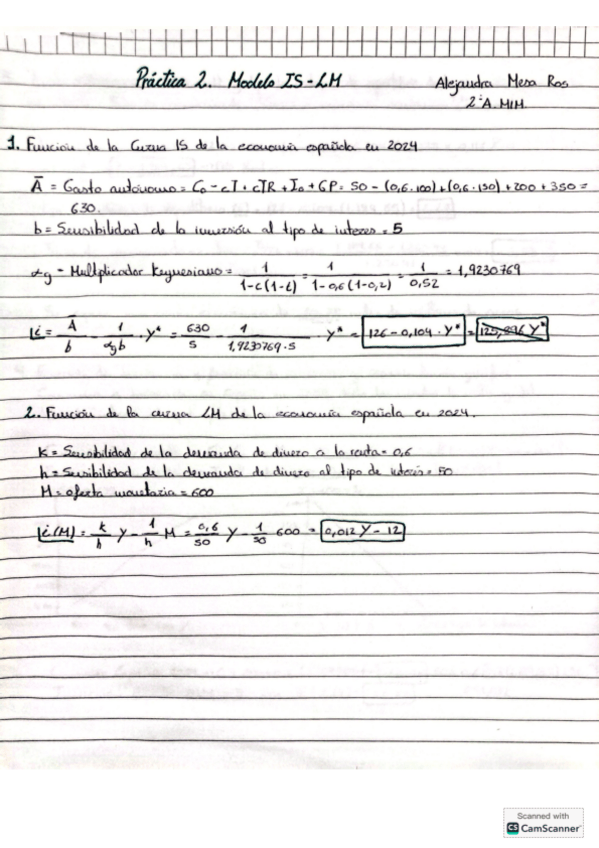 Práctica 2. Modelo IS-LM
Alejandra Mesa Ros
2ºA. MIM.
1. Función de la Curva IS de la economía española en 2024
Ā = Gasto autónomo = C₀ - cT + cTR + I₀ + GP = 50 - (0,6·100) + (0,6·150) + 200 + 350 =
630.
b = Sensibilidad de la inversión al tipo de interes = 5
αg - Multiplicador Keynesiano = 1/(1-c(1-t)) = 1/(1-0,6(1-0,2)) = 1/0,52 = 1,9230769
i = Ā/b - 1/(αg b) · Y* = 630/5 - 1/(1,9230769·5) · Y* = 126 - 0,104 · Y* = 125,896 Y*
2. Función de la curva LM de la economía española en 2024.
k = Sensibilidad de la demanda de dinero a la renta = 0,6
h = Sensibilidad de la demanda de dinero al tipo de interés = 50
M = oferta monetaria = 600
i(M) = k/h Y - 1/h M = 0,6/50 Y - 1/50 600 = 0,012 Y - 12
Scanned with
CS CamScanner